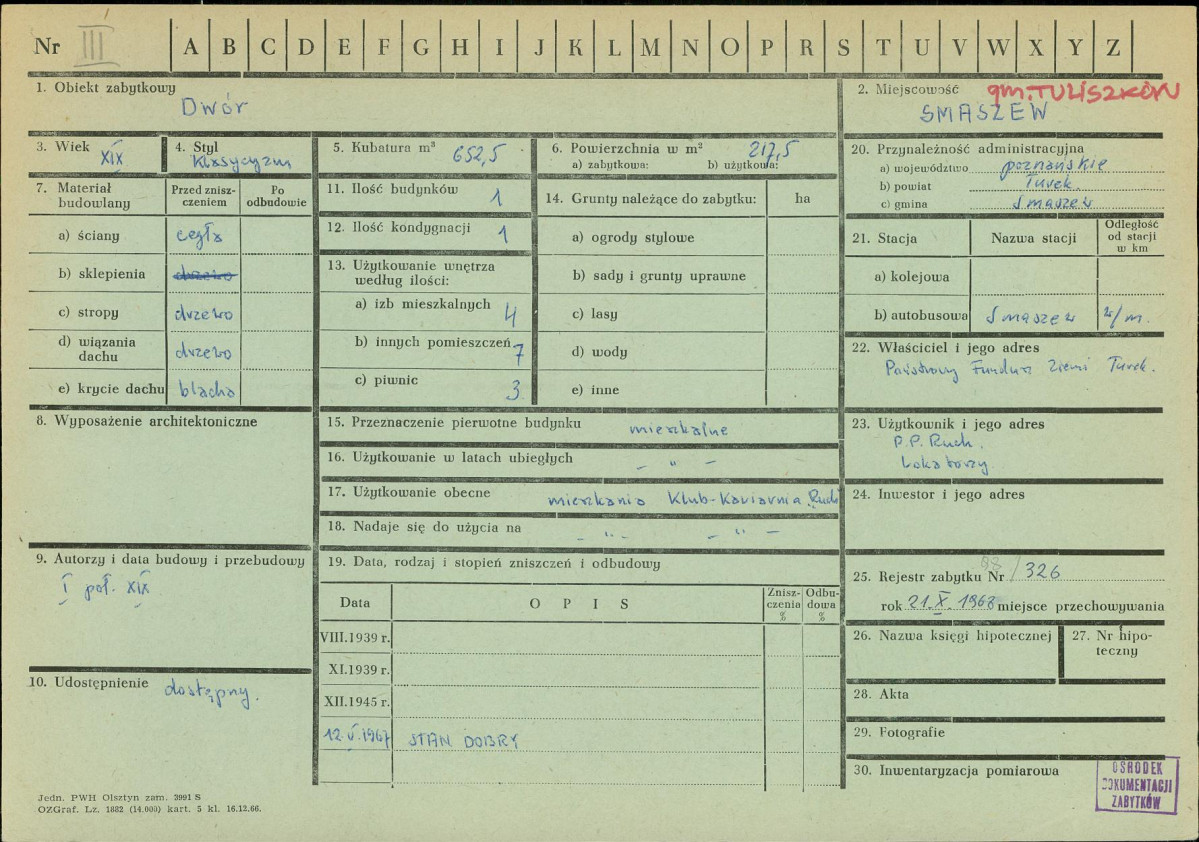 Nr III A B C D E F G H I J K L M N O P R S T U V W X Y Z
1. Obiekt zabytkowy
Dwór
2. Miejscowość gm. TULISZKÓW
SMASZEW
3. Wiek
XIX
4. Styl
Klasycyzm
5. Kubatura m³ 652,5
6. Powierzchnia w m² 217,5
a) zabytkowa: b) użytkowa:
20. Przynależność administracyjna
a) województwo poznańskie
b) powiat Turek
c) gmina Smaszew
7. Materiał budowlany
Przed zniszczeniem
Po odbudowie
a) ściany cegła
b) sklepienia drzewo
c) stropy drzewo
d) wiązania dachu drzewo
e) krycie dachu blacha
11. Ilość budynków 1
12. Ilość kondygnacji 1
13. Użytkowanie wnętrza według ilości:
a) izb mieszkalnych 4
b) innych pomieszczeń 7
c) piwnic 3
14. Grunty należące do zabytku: ha
a) ogrody stylowe
b) sady i grunty uprawne
c) lasy
d) wody
e) inne
21. Stacja
Nazwa stacji
Odległość od stacji w km
a) kolejowa
b) autobusowa Smaszew w/m.
22. Właściciel i jego adres
Państwowy Fundusz Ziemi Turek.
8. Wyposażenie architektoniczne
15. Przeznaczenie pierwotne budynku mieszkalne
16. Użytkowanie w latach ubiegłych – " –
17. Użytkowanie obecne mieszkania Klub-Kawiarnia „Ruch
18. Nadaje się do użycia na – " – – " –
23. Użytkownik i jego adres
P.P. Ruch.
Lokatorzy.
24. Inwestor i jego adres
9. Autorzy i data budowy i przebudowy
I poł. XIX
19. Data, rodzaj i stopień zniszczeń i odbudowy
Data
O P I S
Zniszczenia %
Odbudowa %
VIII.1939 r.
XI.1939 r.
XII.1945 r.
12.V.1967 STAN DOBRY
25. Rejestr zabytku Nr /326
rok 21.X.1968 miejsce przechowywania
26. Nazwa księgi hipotecznej
27. Nr hipoteczny
10. Udostępnienie dostępny.
28. Akta
29. Fotografie
30. Inwentaryzacja pomiarowa
OŚRODEK
DOKUMENTACJI
ZABYTKÓW
Jedn. PWH Olsztyn zam. 3991 S
OZGraf. Lz. 1882 (14.000) kart. 5 kl. 16.12.66.